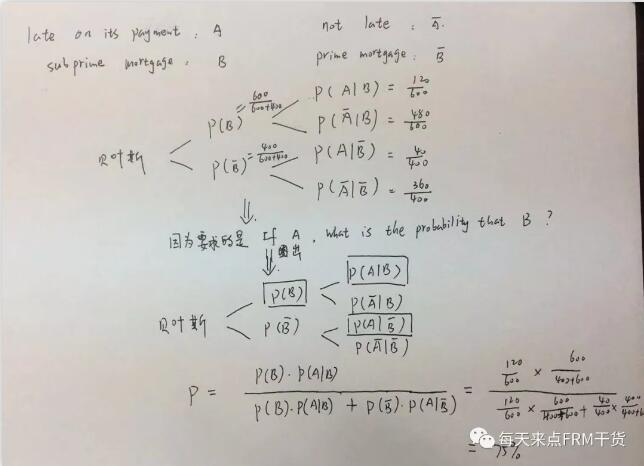 late on its payment : A    not late : A̅.
subprime mortgage : B    prime mortgage : B̅
P(A|B) = 120/600
P(B) = 600/(600+400)
P(A̅|B) = 480/600
贝叶斯
P(B̅) = 400/(600+400)    P(A|B̅) = 40/400
P(A̅|B̅) = 360/400
因为要求的是 If A , what is the probability that B ?
圈出
P(B)    P(A|B)
P(A̅|B)
贝叶斯
P(B̅)    P(A|B̅)
P(A̅|B̅)
P = P(B)·P(A|B) / (P(B)·P(A|B) + P(B̅)·P(A|B̅)) = (120/600 × 600/(400+600)) / (120/600 × 600/(400+600) + 40/400 × 400/(400+6
= 75%
每天来点FRM干货